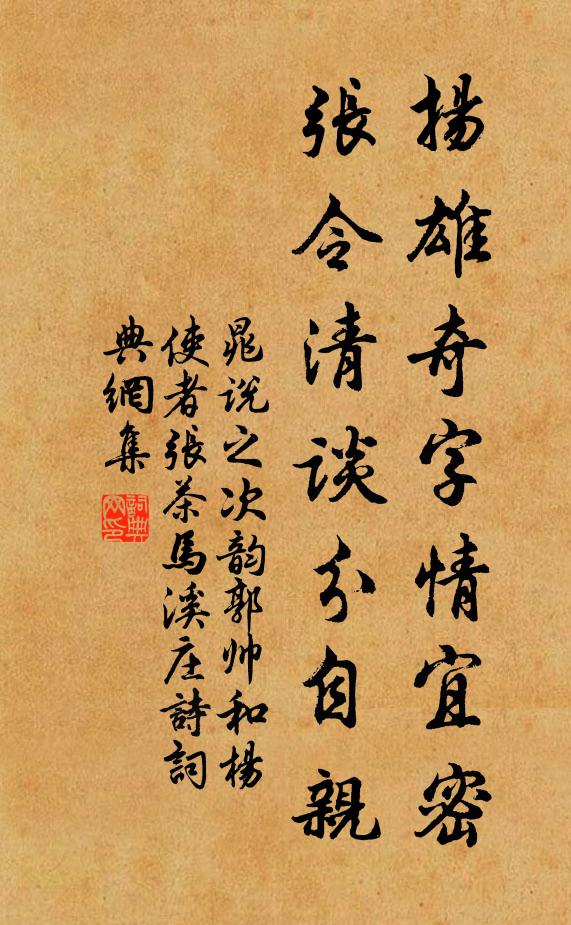 揚雄奇字情宜密
張令清談分自親
晁說之次韵郭帅和楊
使者張茶馬溪庄詩詞
典網集
詞典
网印